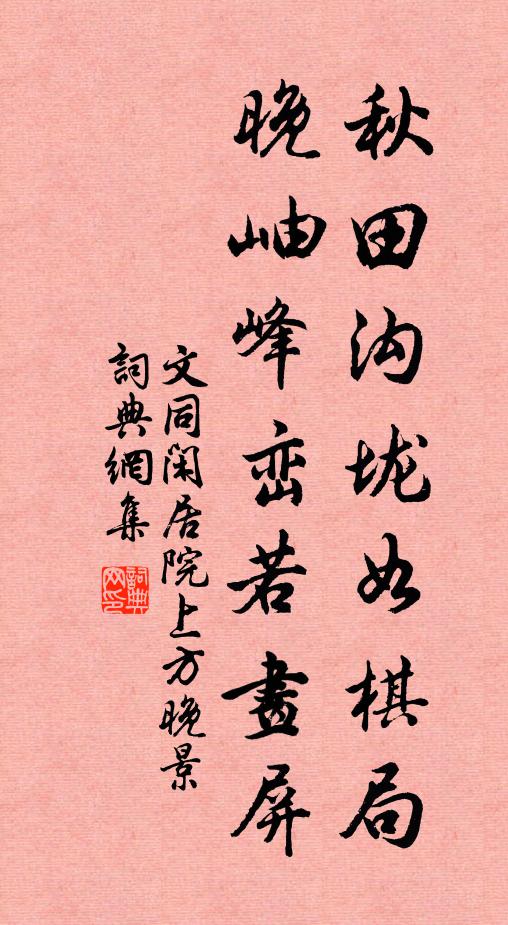 秋田沟垅如棋局
晚岫峰峦若畫屏
文同闲居院上方晚景
詞典網集
詞典网印